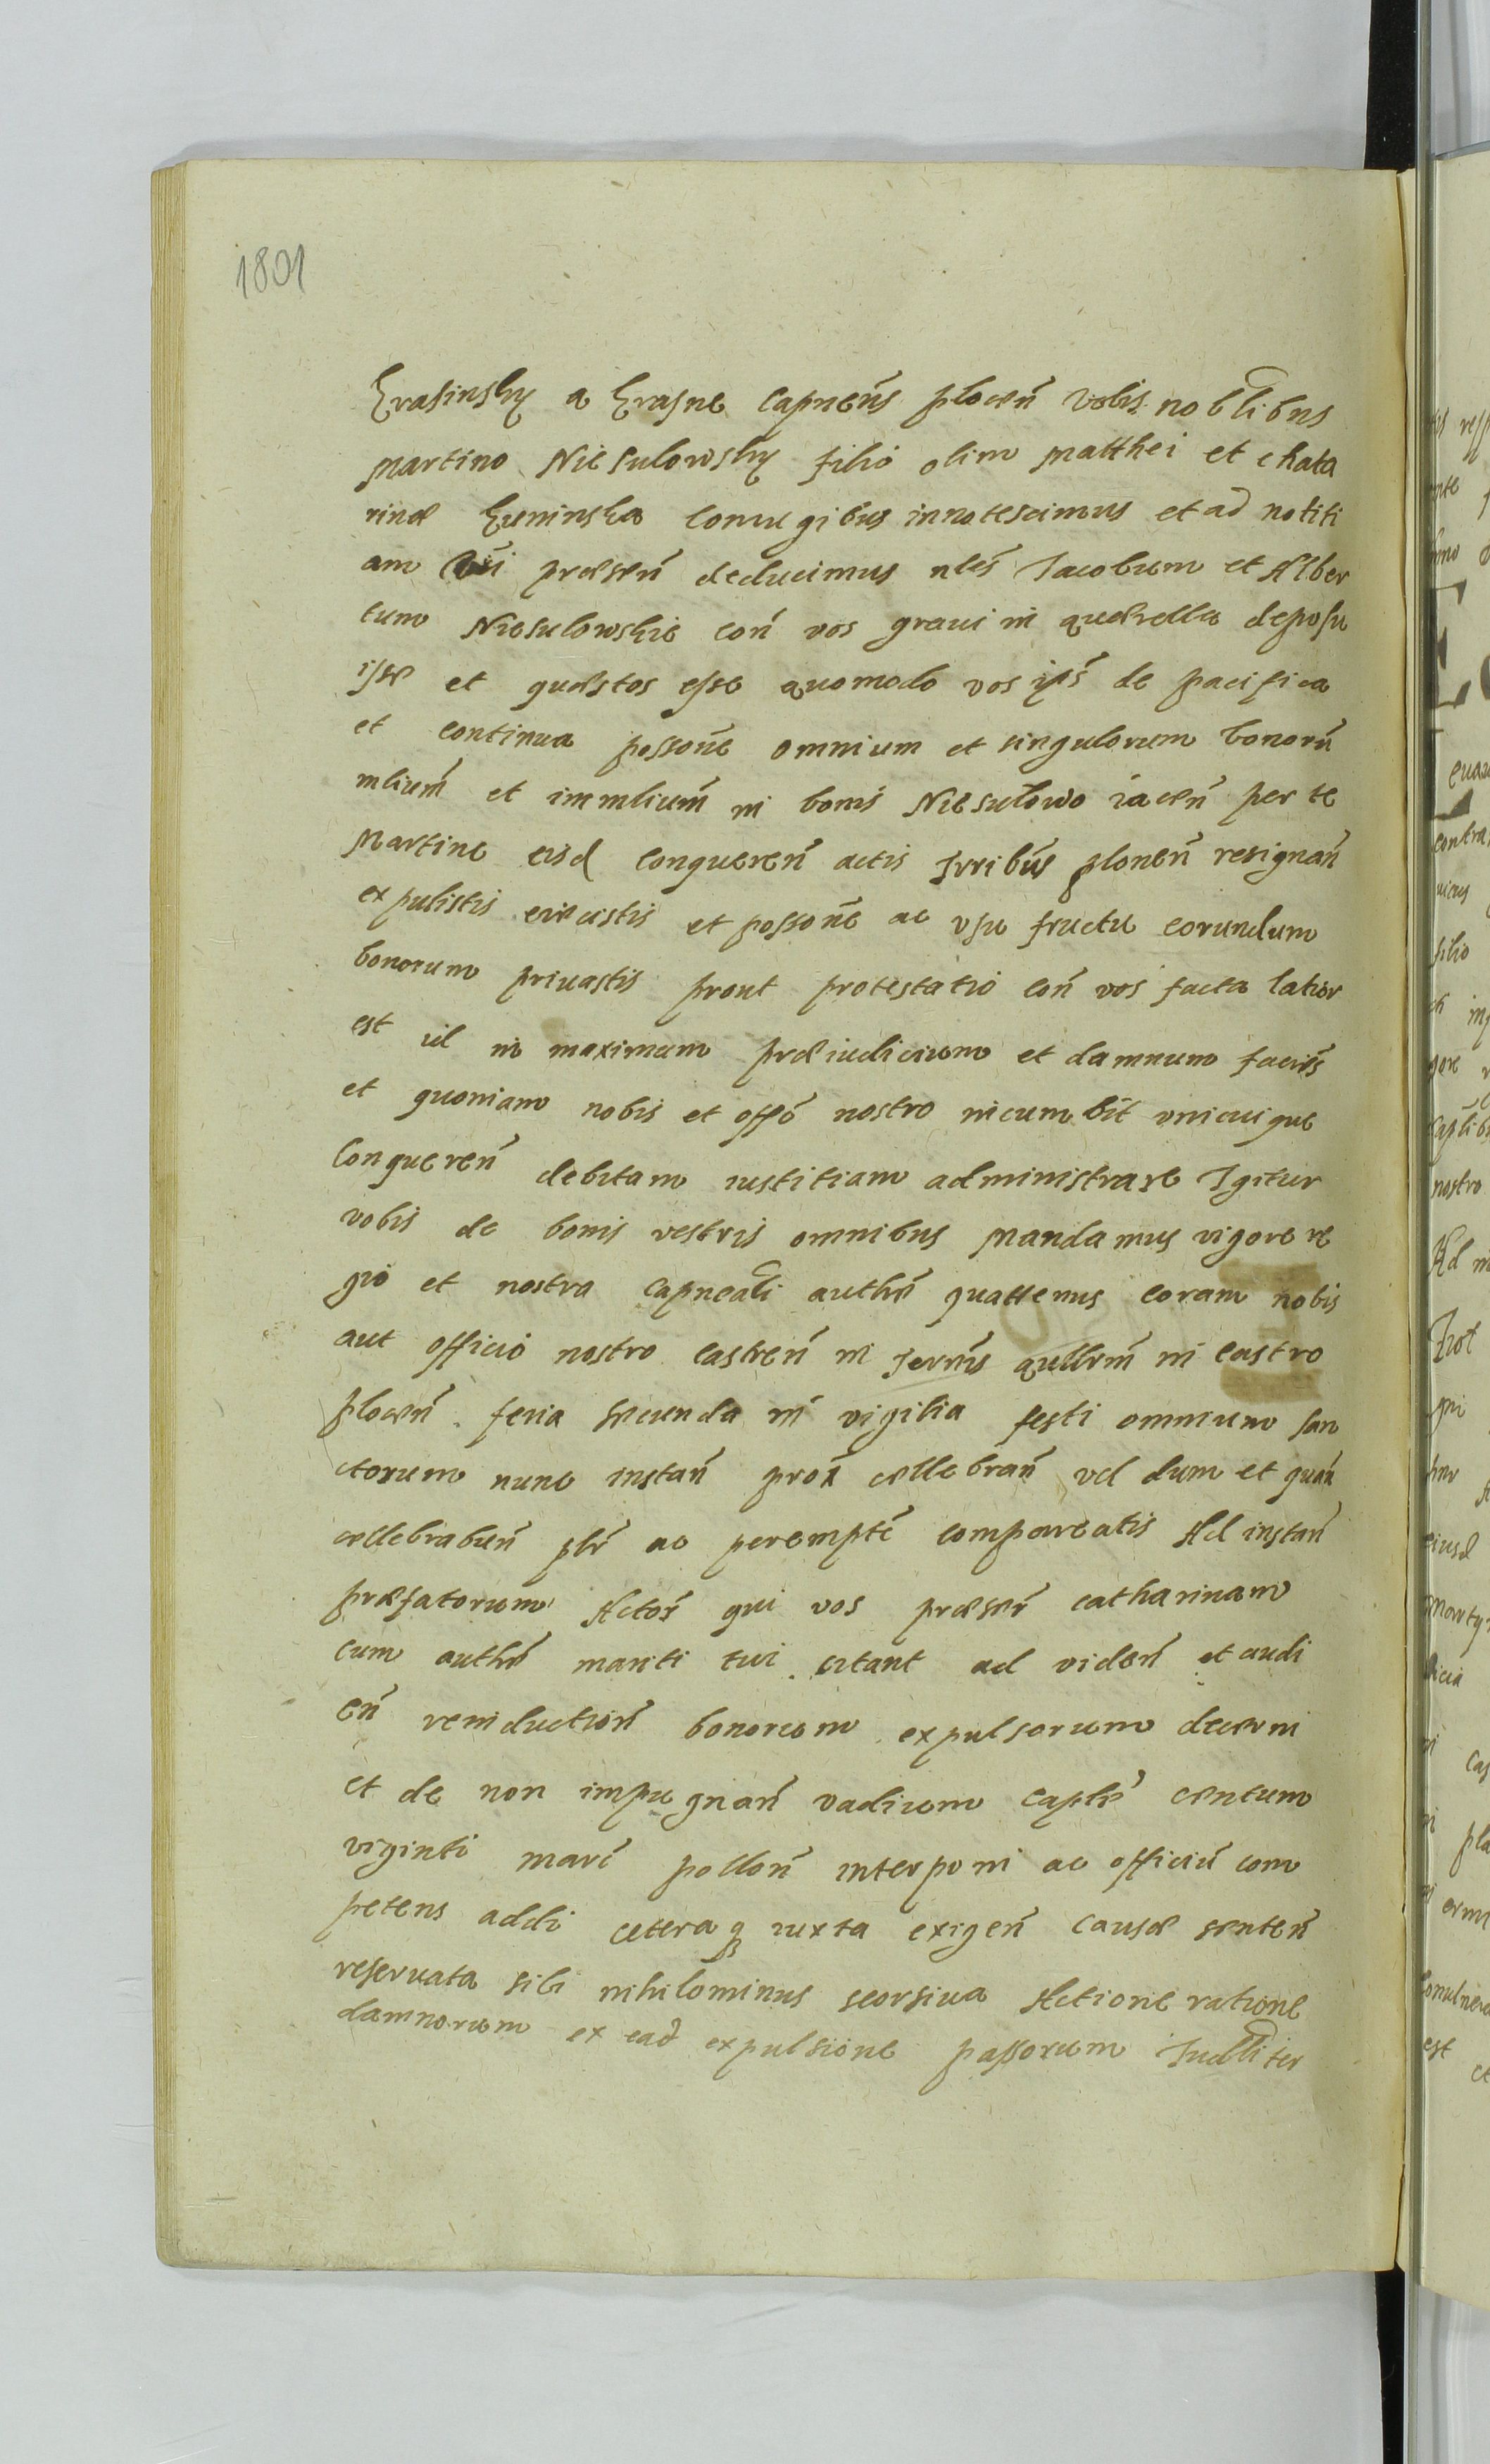 1801
Krasinsky a Krasne Capneus ploceñ vobis nobilibus
Martino Niesulowsky filio olim Matthei et Chata
rinæ Kuninska Coniugibus innotescimus et ad notiti
am præseñ deducimus nles Iacobum et Alber
tum Niesulowskie coñ vos graui in quærella deposu
isse et quæstos esse quomodo vos ips de pacifica
et continua possone omnium et singulorum bonorũ
mlium et immlium in bonis Niesulowo iaceñ per te
Martine eisd conquereñ actis Trribus ploneñ resignañ
expulistis eiecistis et possone ac vsu fructu eorundum
bonorum priuastis prout protestatio coñ vos facta latior
est id in maximum præiudicium et damnum facies
et quoniam nobis et offo nostro incumbit vnicuique
Conquereñ debitam iustitiam administrare Igitur
vobis de bonis vestris omnibus Mandamus vigore re
gio et nostra Capneali authe quattenus coram nobis
aut officio nostro castreñ in Termis qullrm in Castro
ploceñ feria secunda in vigilia festi omnium san
ctorum nunc instañ prox cellebrañ vel dum et quañ
cellebrabuñ plr ac perempte compareatis Ad instañ
præfatorum Actor qui vos præser catharinam
cum authe mariti tui citant ad videñ et audi
eñ reinductioñ bonorum expulsorum decerni
et de non impugnañ vadium Caple centum
viginti marc polloñ interponi ac officiũ com
petens addi ceteraq iuxta exigeñ causæ senteñ
reseruata sibi nihilominus seorsiua Actione ratione
damnorum ex ead expulsione passorum Iudliter